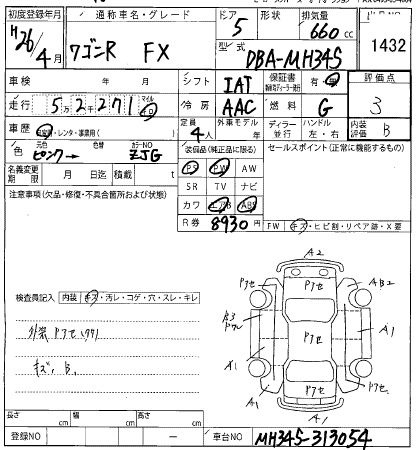 初度登録年月 通称車名・グレード ドア 形状 排気量
H26/4月 ワゴンR FX 5 660cc 1432
型式 DBA-MH34S
車検 年 月 シフト IAT 保証書 有・無 評価点
走行 5 2 2 7 1 マイル キロ 冷房 AAC 燃料 G 3
車歴 自家用・レンタ・事業用( ) 定員 4人 外車モデル 年 ディーラー 並行 ハンドル 左・右 内装評価 B
色 元色 ピンク→ 色替 カラーNO ZJG 装備品(純正品に限る) セールスポイント(正常に機能するもの)
名義変更期限 月 日迄 積載 t PS PW AW
注意事項(欠品・修復・不具合箇所および状態) SR TV ナビ
カワ エアB ABS
R券 8930円 FW キズ・ヒビ割・リペア跡・X要
A2
Pアセ
検査員記入 内装 キズ・汚レ・コゲ・穴・スレ・キレ
AB2
外装 Pアセ
Pアセ
A1
キズ、B.
A1
Pアセ
A1
A1
長さ cm 幅 cm 高さ cm
登録NO ー 車台NO MH34S-313054